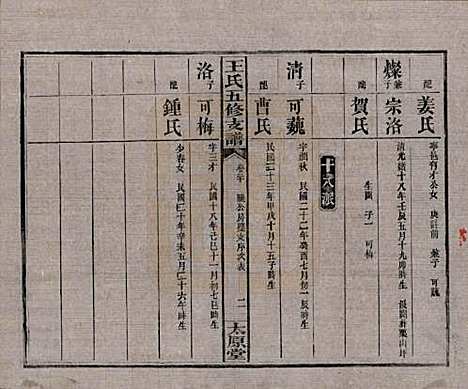 配 姜氏
寧邑有才公女 庚註前 兼子 可巍
燦兼子 宗洛
清光緒十八年壬辰五月十九卯時生
配 賀氏
生 子一 可梅
十八派
清子 可巍
字潤秋 民國二十二年癸酉七月初一辰時生
配 曹氏
民國二十三年甲戌十月十五子時生
王氏五修支譜
卷 公房經文序次表 二
太原堂
洛子 可梅
字三才 民國十八年己巳十一月初七巳時生
配 鍾氏
少春女 民國二十年辛未五月二十六午時生